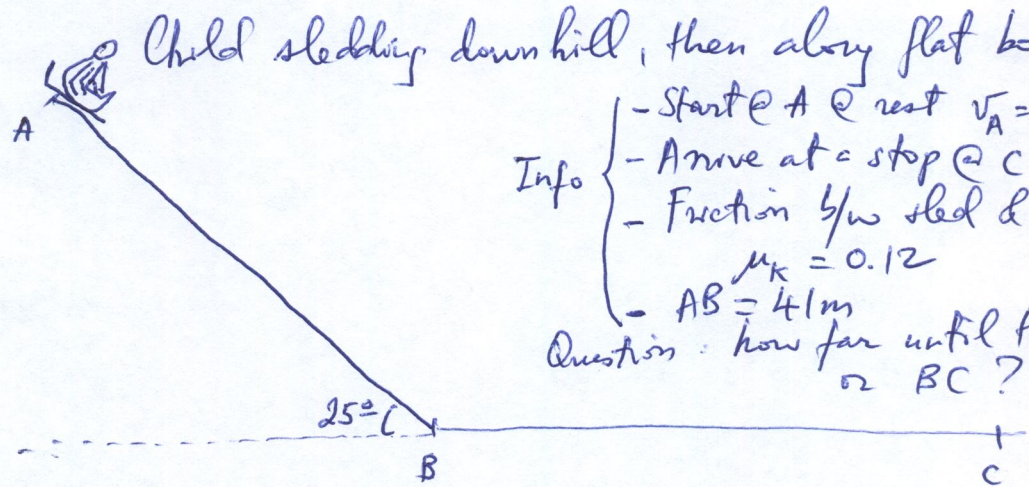 Child sledding downhill, then along flat
A
Info
- Start @ A @ rest v_A =
- Arrive at a stop @ C
- Friction b/w sled &
μ_k = 0.12
- AB = 41m
Question: how far until
or BC ?
25°
B
C